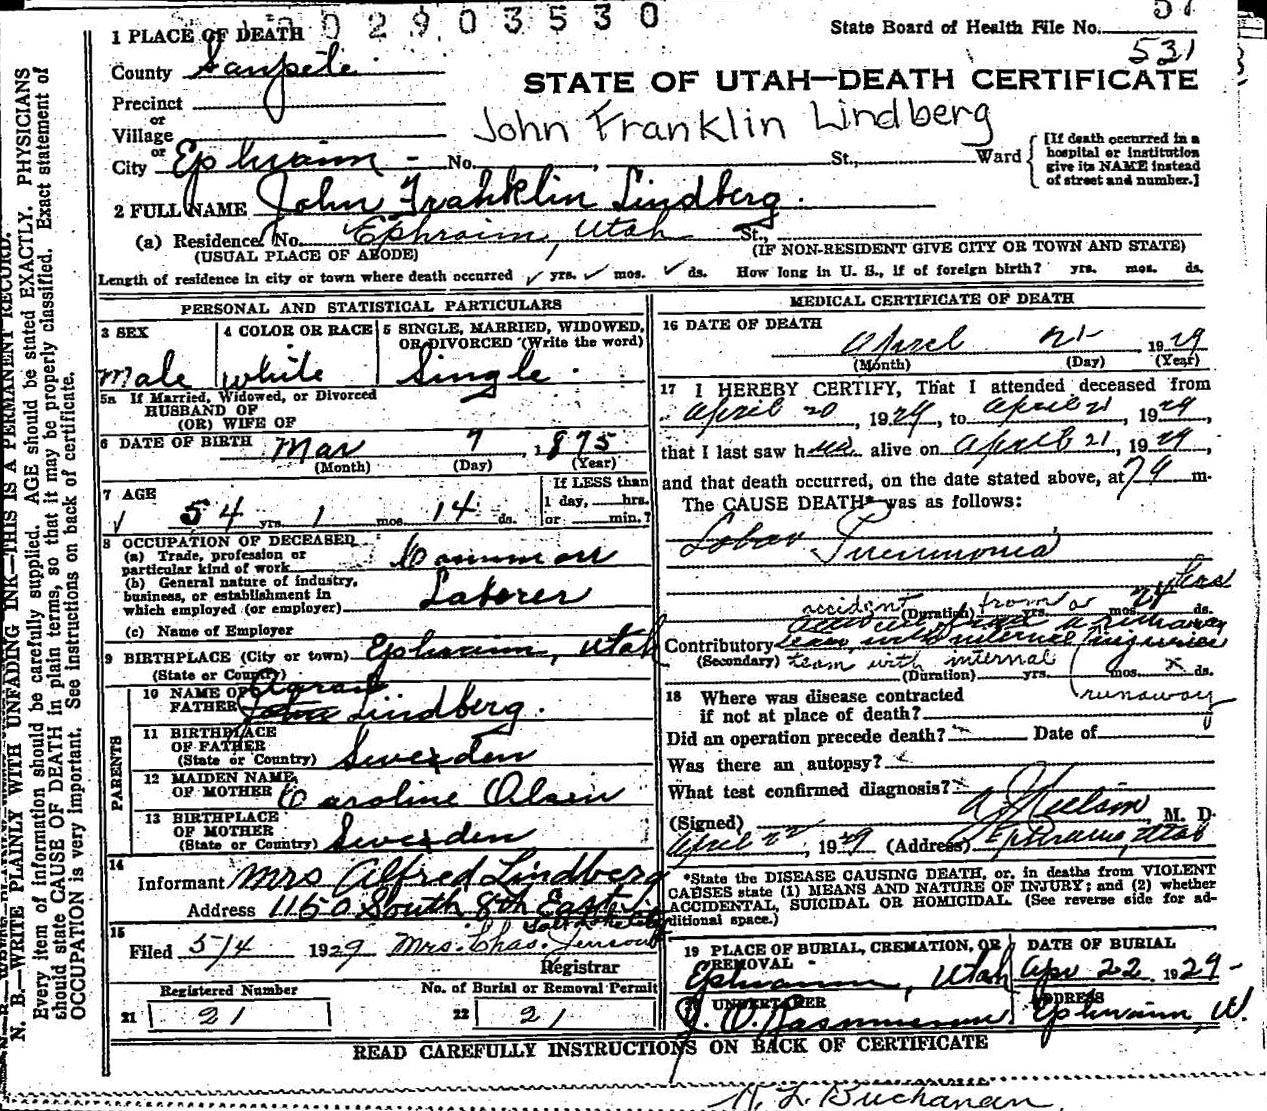 02903530
State Board of Health File No. 57
531
1 PLACE OF DEATH
County Sanpete
STATE OF UTAH—DEATH CERTIFICATE
Precinct
or
Village
John Franklin Lindberg
or
City Ephraim - No. St., Ward
[If death occurred in a hospital or institution give its NAME instead of street and number.]
2 FULL NAME John Franklin Lindberg.
(a) Residence. No. Ephraim, Utah St.,
(USUAL PLACE OF ABODE) (IF NON-RESIDENT GIVE CITY OR TOWN AND STATE)
Length of residence in city or town where death occurred yrs. mos. ds. How long in U. S., if of foreign birth? yrs. mos. ds.
PERSONAL AND STATISTICAL PARTICULARS
3 SEX 4 COLOR OR RACE 5 SINGLE, MARRIED, WIDOWED, OR DIVORCED (Write the word)
Male white Single
5a If Married, Widowed, or Divorced
HUSBAND OF
(OR) WIFE OF
6 DATE OF BIRTH Mar 7, 1875
(Month) (Day) (Year)
7 AGE If LESS than
1 day, hrs.
54 yrs. 1 mos. 14 ds. or min.?
8 OCCUPATION OF DECEASED
(a) Trade, profession or
particular kind of work Common
(b) General nature of industry,
business, or establishment in
which employed (or employer) Laborer
(c) Name of Employer
9 BIRTHPLACE (City or town) Ephraim, Utah
(State or Country)
PARENTS
10 NAME OF
FATHER John Lindberg.
11 BIRTHPLACE
OF FATHER
(State or Country) Sweden
12 MAIDEN NAME
OF MOTHER Caroline Olsen
13 BIRTHPLACE
OF MOTHER
(State or Country) Sweden
14
Informant Mrs Alfred Lindberg
Address 1150 South 8th East
Salt Lake City
15
Filed 5/4 1929 Mrs. Chas. Jenson
Registrar
Registered Number No. of Burial or Removal Permit
21 21 22 21
MEDICAL CERTIFICATE OF DEATH
16 DATE OF DEATH
April 21 1929
(Month) (Day) (Year)
17 I HEREBY CERTIFY, That I attended deceased from
April 20, 1929, to April 21, 1929,
that I last saw him alive on April 21, 1929,
and that death occurred, on the date stated above, at m.
The CAUSE DEATH* was as follows:
Lobar Pneumonia
accident from a
(Duration) yrs. mos. ds.
Contributory team with internal injuries
(Secondary) team with internal
(Duration) yrs. mos. x ds.
runaway
18 Where was disease contracted
if not at place of death?
Did an operation precede death? Date of
Was there an autopsy?
What test confirmed diagnosis?
(Signed) M. D.
April 22, 1929 (Address) Ephraim, Utah
*State the DISEASE CAUSING DEATH, or, in deaths from VIOLENT
CAUSES state (1) MEANS AND NATURE OF INJURY; and (2) whether
ACCIDENTAL, SUICIDAL OR HOMICIDAL. (See reverse side for ad-
ditional space.)
19 PLACE OF BURIAL, CREMATION, OR
REMOVAL
Ephraim, Utah
DATE OF BURIAL
Apr 22 1929
20 UNDERTAKER ADDRESS
Rasmussen. Ephraim, U.
READ CAREFULLY INSTRUCTIONS ON BACK OF CERTIFICATE
Buchanan
N. B.—WRITE PLAINLY WITH UNFADING INK—THIS IS A PERMANENT RECORD.
Every item of information should be carefully supplied. AGE should be stated EXACTLY. PHYSICIANS
should state CAUSE OF DEATH in plain terms, so that it may be properly classified. Exact statement of
OCCUPATION is very important. See instructions on back of certificate.